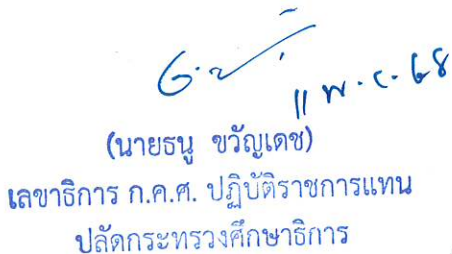 (นายธนู ขวัญเดช)
เลขาธิการ ก.ค.ศ. ปฏิบัติราชการแทน
ปลัดกระทรวงศึกษาธิการ